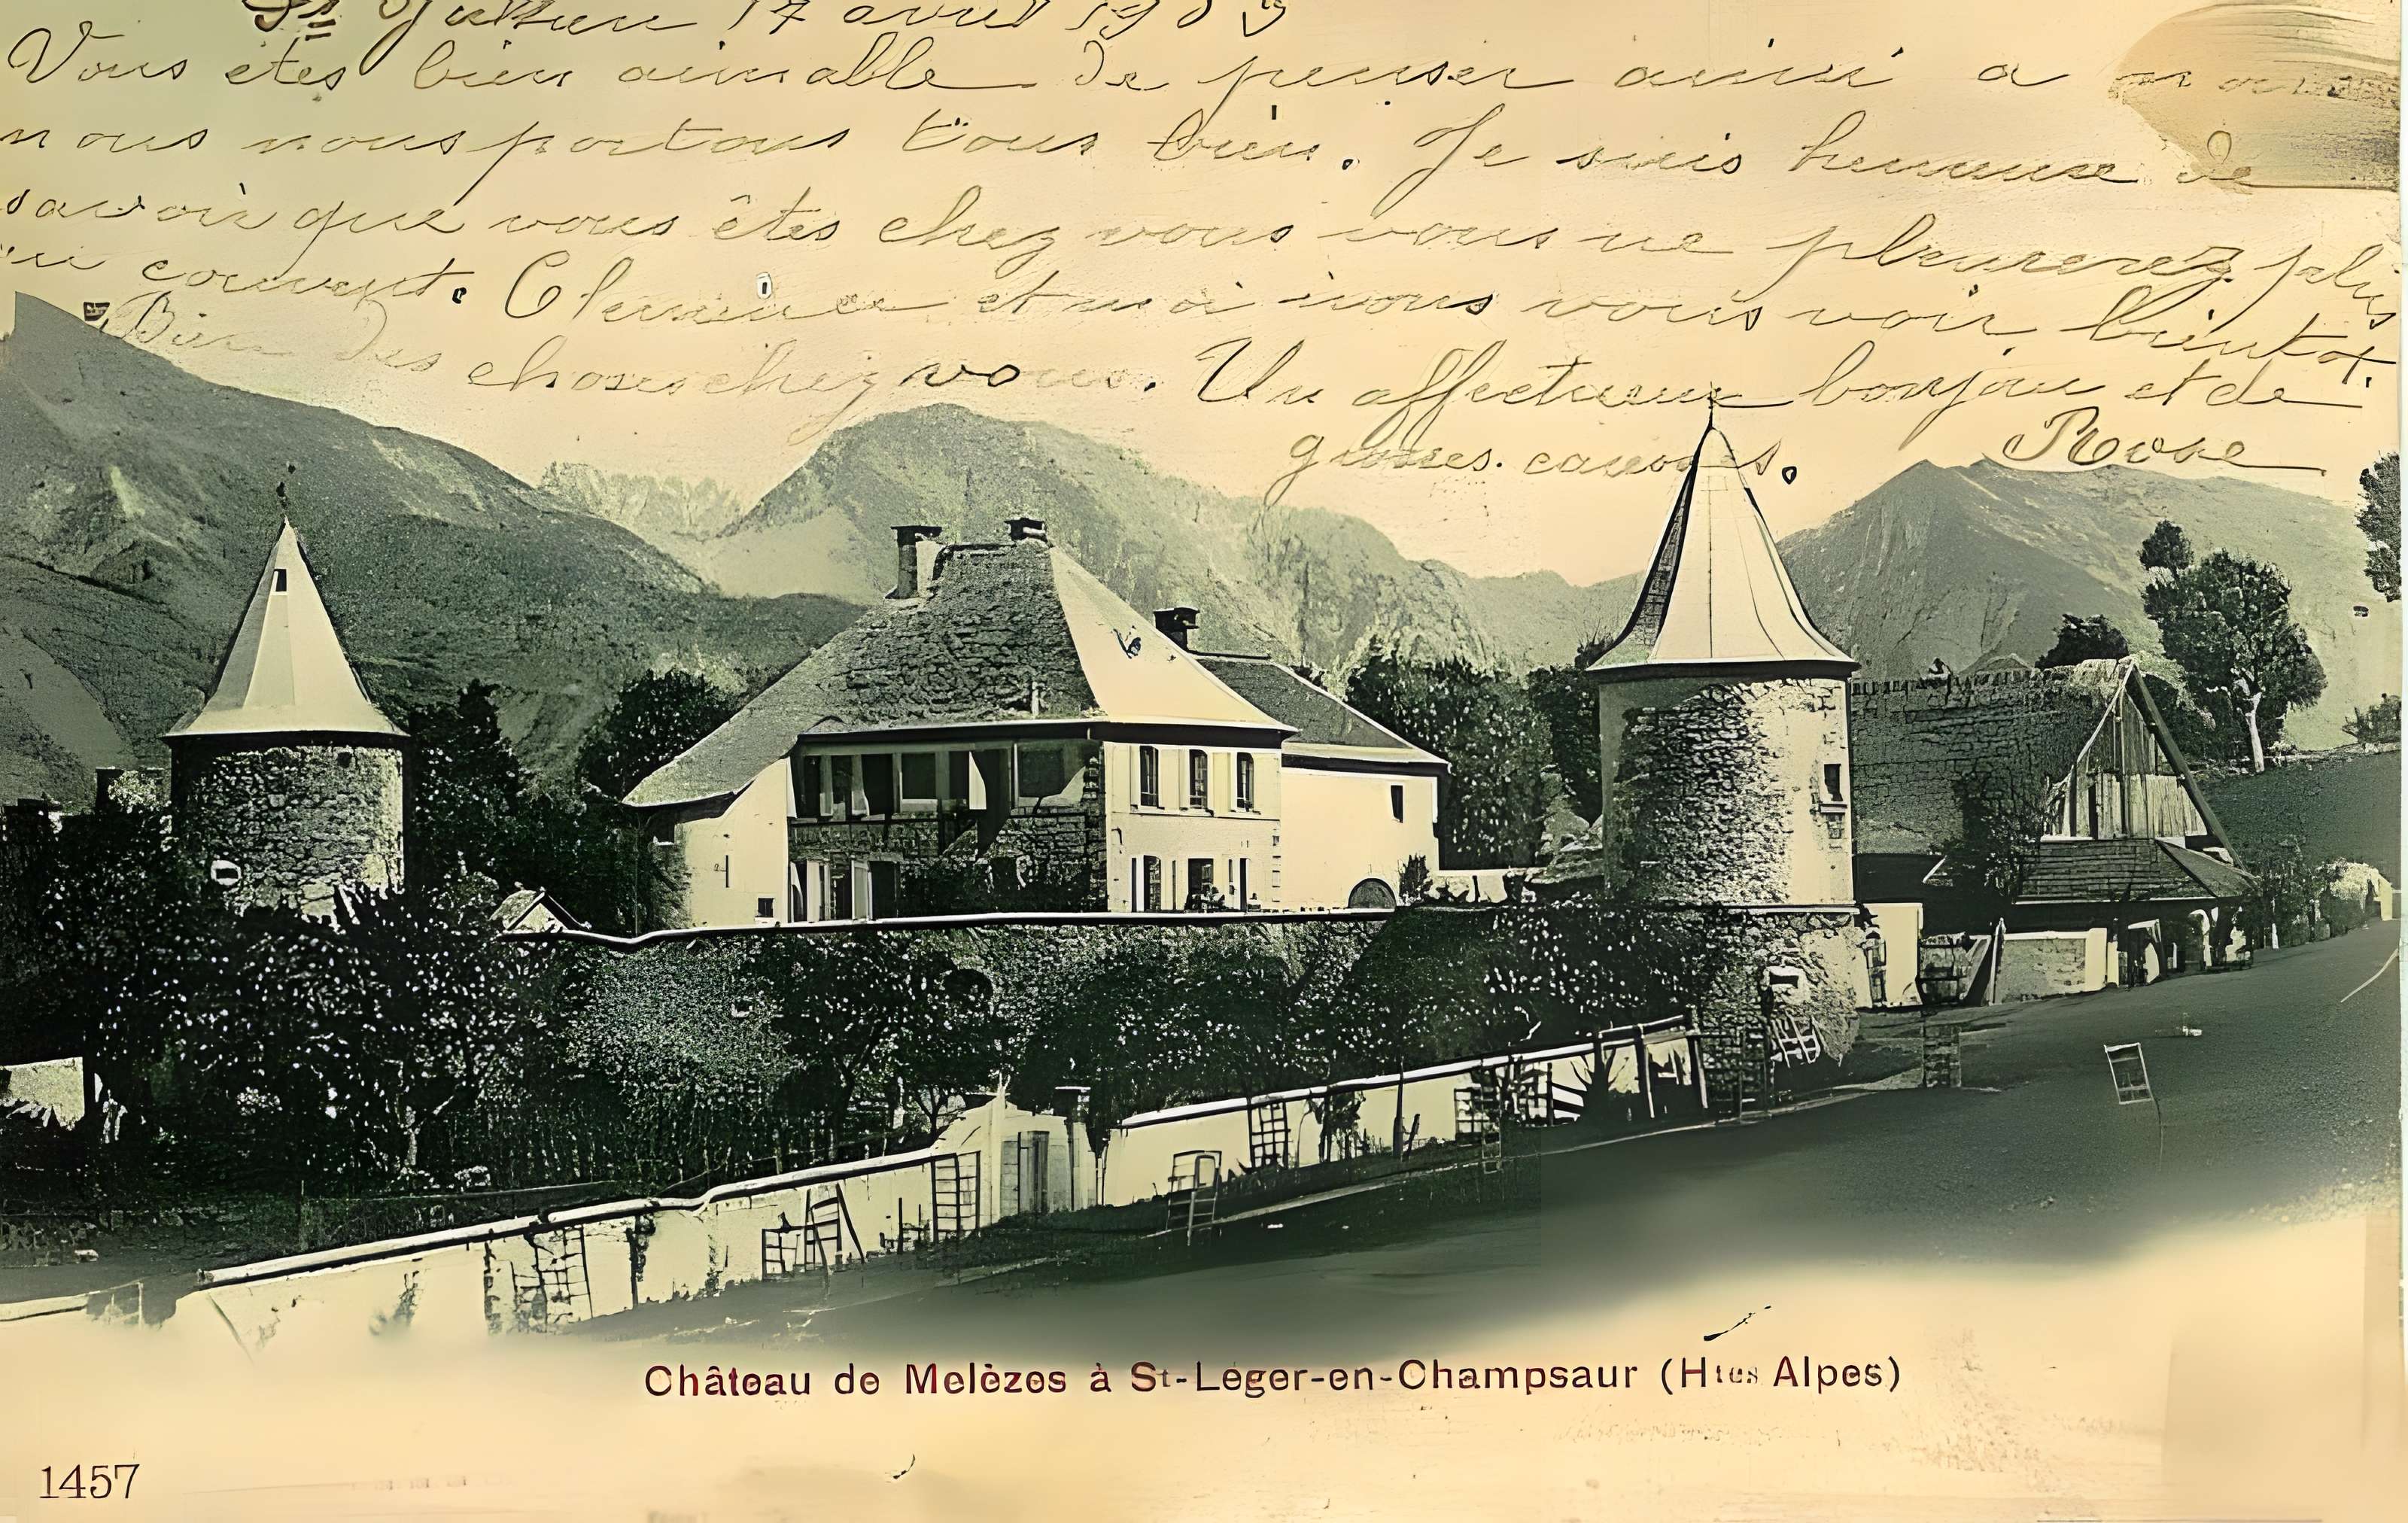 St Julien 17 avril 1903
Vous êtes bien aimable de penser ainsi a
nous nous portons tous bien. Je suis heureuse de
savoir que vous êtes chez vous vous ne pleurerez plus
au couvent. Clemence et moi irons vous voir bientot.
Bien des choses chez vous. Un affectueux bonjour et de
grosses caresses. Rose
Château de Melèzes à St-Léger-en-Champsaur (Htes Alpes)
1457